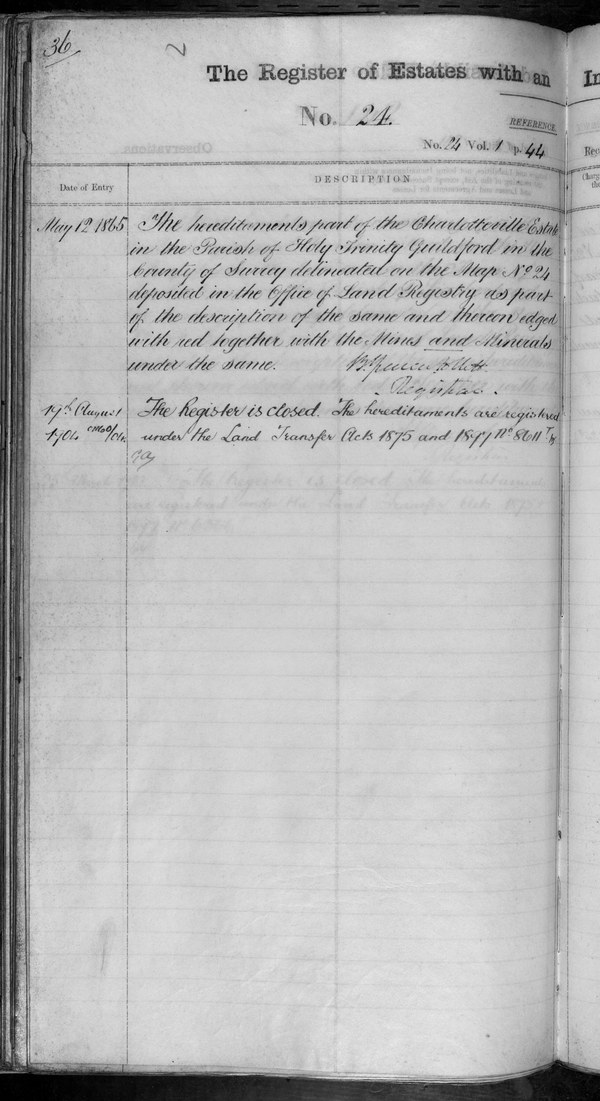 36
2
The Register of Estates with an
No. 24.
REFERENCE.
No. 24 Vol. 1 p. 44
Date of Entry
DESCRIPTION
May 12 1865 The hereditaments part of the Charlotteville Estate
in the Parish of Holy Trinity Guildford in the
County of Surrey delineated on the Map No 24
deposited in the Office of Land Registry as part
of the description of the same and thereon edged
with red together with the Mines and Minerals
under the same.
Registrar.
19th August The Register is closed. The hereditaments are registered
1904 under the Land Transfer Acts 1875 and 1897 No 8611
In